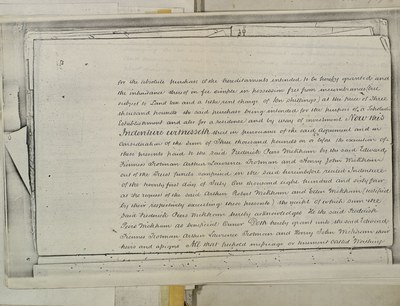 for the absolute purchase of the hereditaments intended to be hereby granted and
the inheritance thereof in fee simple in possession free from incumbrances (but
subject to Land tax and a tithe rent charge of ten shillings) at the sum of Three
thousand pounds the said purchase being intended for the purpose of a Scholastic
Establishment and also for a residence and by way of investment Now this
Indenture witnesseth that in pursuance of the said agreement and in
consideration of the sum of Three thousand pounds on or before the execution of
these presents paid to the said Frederick Peers Wickham by the said Edward
Arthur Lawrence Protman and Henry John Wickham
out of the trust funds comprised in the said hereinbefore recited Indenture
of the twenty first day of July One thousand eight hundred and sixty four
at the request of the said Arthur Robert Wickham and Ellen Wickham (testified
by their respectively executing these presents) the receipt of which sum the
said Frederick Peers Wickham hereby acknowledges He the said Frederick
Peers Wickham as beneficial Owner Doth hereby grant unto the said Edward
Arthur Lawrence Protman and Henry John Wickham their
heirs and assigns All that freehold messuage or tenement called